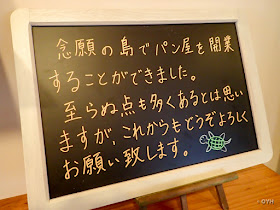 念願の島でパン屋を開業
することができました。
至らぬ点も多くあるとは思い
ますが、これからもどうぞよろしく
お願い致します。